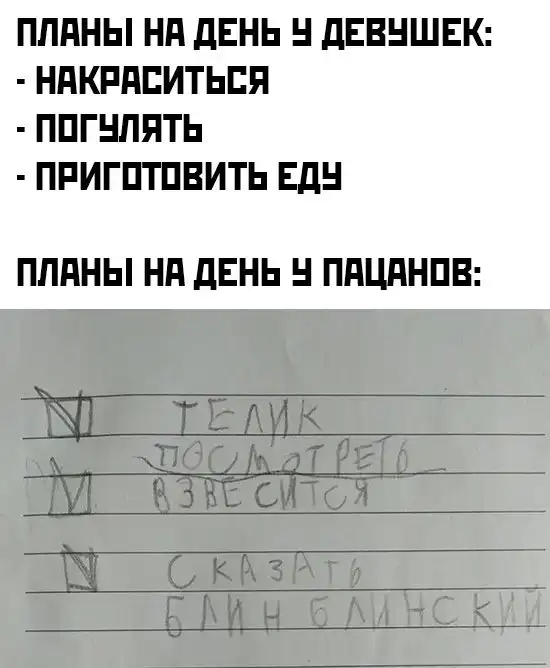 ПЛАНЫ НА ДЕНЬ У ДЕВУШЕК:
- НАКРАСИТЬСЯ
- ПОГУЛЯТЬ
- ПРИГОТОВИТЬ ЕДУ
ПЛАНЫ НА ДЕНЬ У ПАЦАНОВ:
ТЕЛИК
ПОСМОТРЕТЬ
ВЗВЕСИТСЯ
СКАЗАТЬ
БЛИН БЛИНСКИЙ